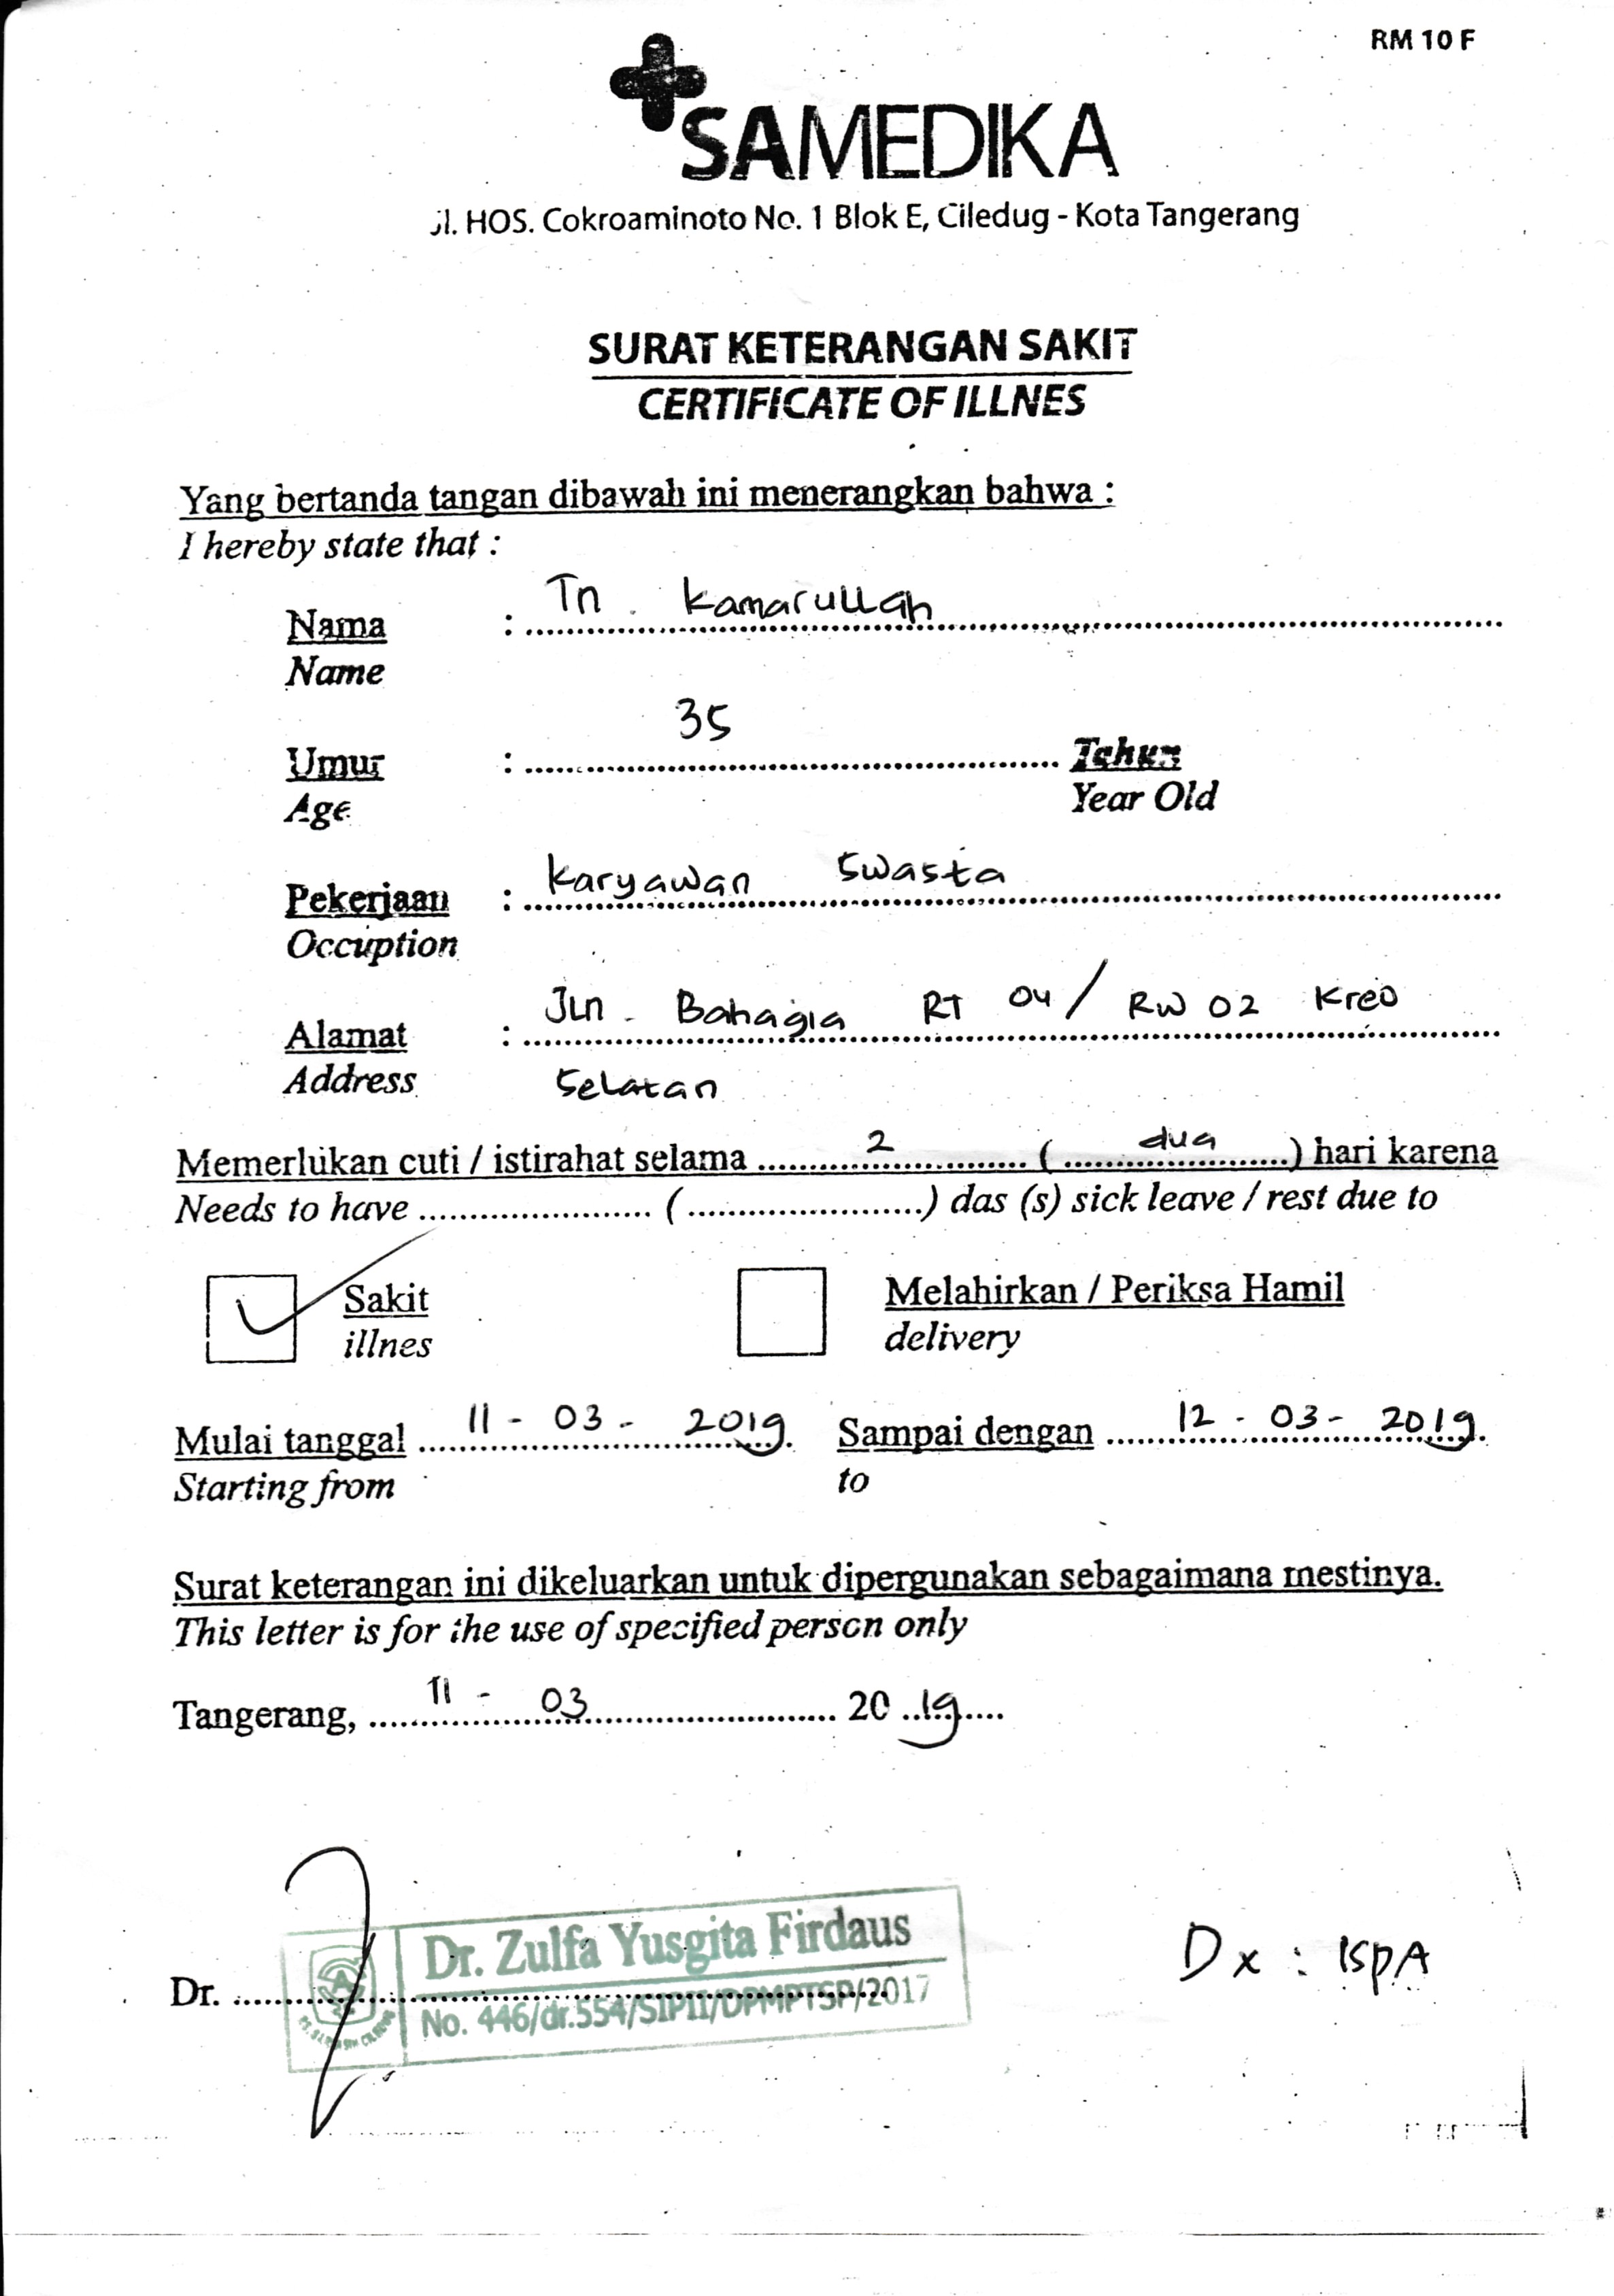 RM 10 F
SAMEDIKA
Jl. HOS. Cokroaminoto No. 1 Blok E, Ciledug - Kota Tangerang
SURAT KETERANGAN SAKIT
CERTIFICATE OF ILLNES
Yang bertanda tangan dibawah ini menerangkan bahwa :
I hereby state that :
Nama : Tn. Kamarullah
Name
Umur : 35 Tahun
Age Year Old
Pekerjaan : Karyawan Swasta
Occuption
Alamat : Jln. Bahagia RT 04 / RW 02 Kreo
Address Selatan
Memerlukan cuti / istirahat selama 2 ( dua ) hari karena
Needs to have ........................ ( ........................ ) das (s) sick leave / rest due to
Sakit Melahirkan / Periksa Hamil
illnes delivery
Mulai tanggal 11 - 03 - 2019. Sampai dengan 12 - 03 - 2019.
Starting from to
Surat keterangan ini dikeluarkan untuk dipergunakan sebagaimana mestinya.
This letter is for the use of specified person only
Tangerang, 11 - 03 20 19
Dr. Zulfa Yusgita Firdaus
Dx : ISPA
Dr.
No. 446/dr.554/SIPII/DPMPTSP/2017